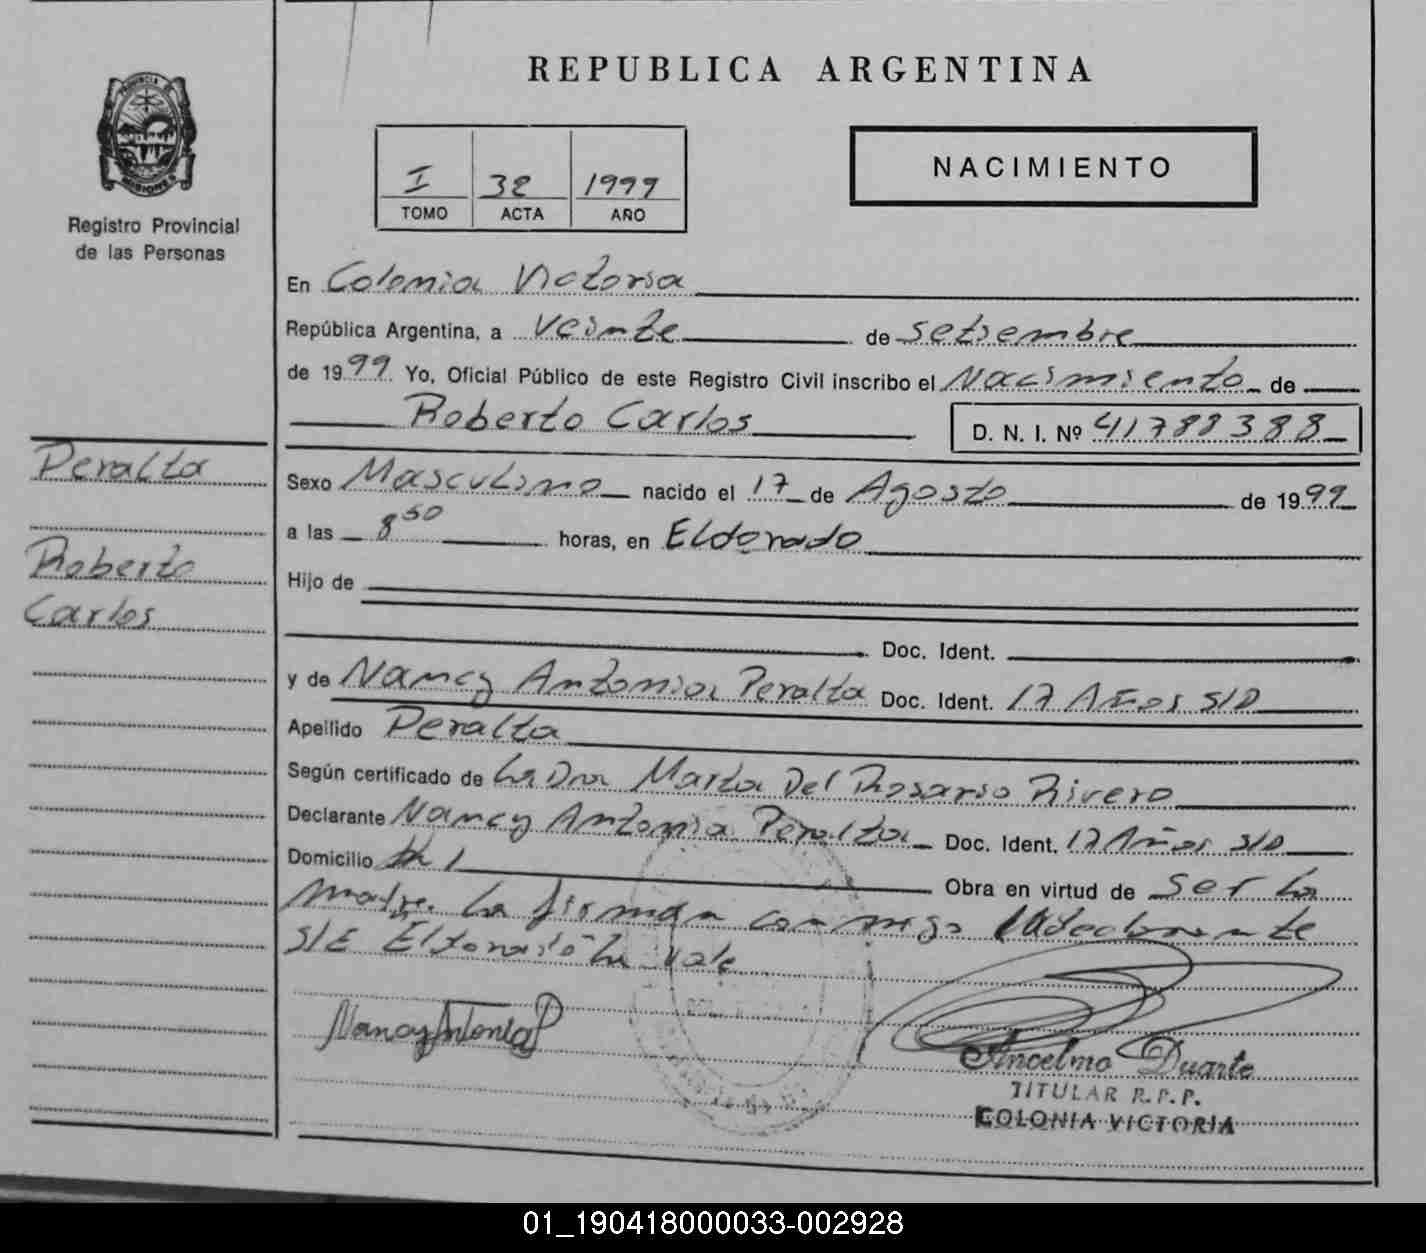 REPUBLICA ARGENTINA
PROVINCIA DE
MISIONES
Registro Provincial
de las Personas
I 32 1999
TOMO ACTA AÑO
NACIMIENTO
En Colonia Victoria
República Argentina, a veinte de setiembre
de 1999 Yo, Oficial Público de este Registro Civil inscribo el Nacimiento de
Roberto Carlos D. N. I. Nº 41788388
Peralta
Roberto
Carlos
Sexo Masculino nacido el 17 de Agosto de 1999
a las 8 50 horas, en Eldorado
Hijo de
Doc. Ident.
y de Nancy Antonia Peralta Doc. Ident. 17 Años S/D
Apellido Peralta
Según certificado de La Dra Marta Del Rosario Rivero
Declarante Nancy Antonia Peralta Doc. Ident. 17 Años S/D
Domicilio Obra en virtud de ser La
madre. La firman conmigo
S/E Eldorado Vale
Nancy Antonia P
Ancelmo Duarte
TITULAR R.P.P.
COLONIA VICTORIA
01_190418000033-002928